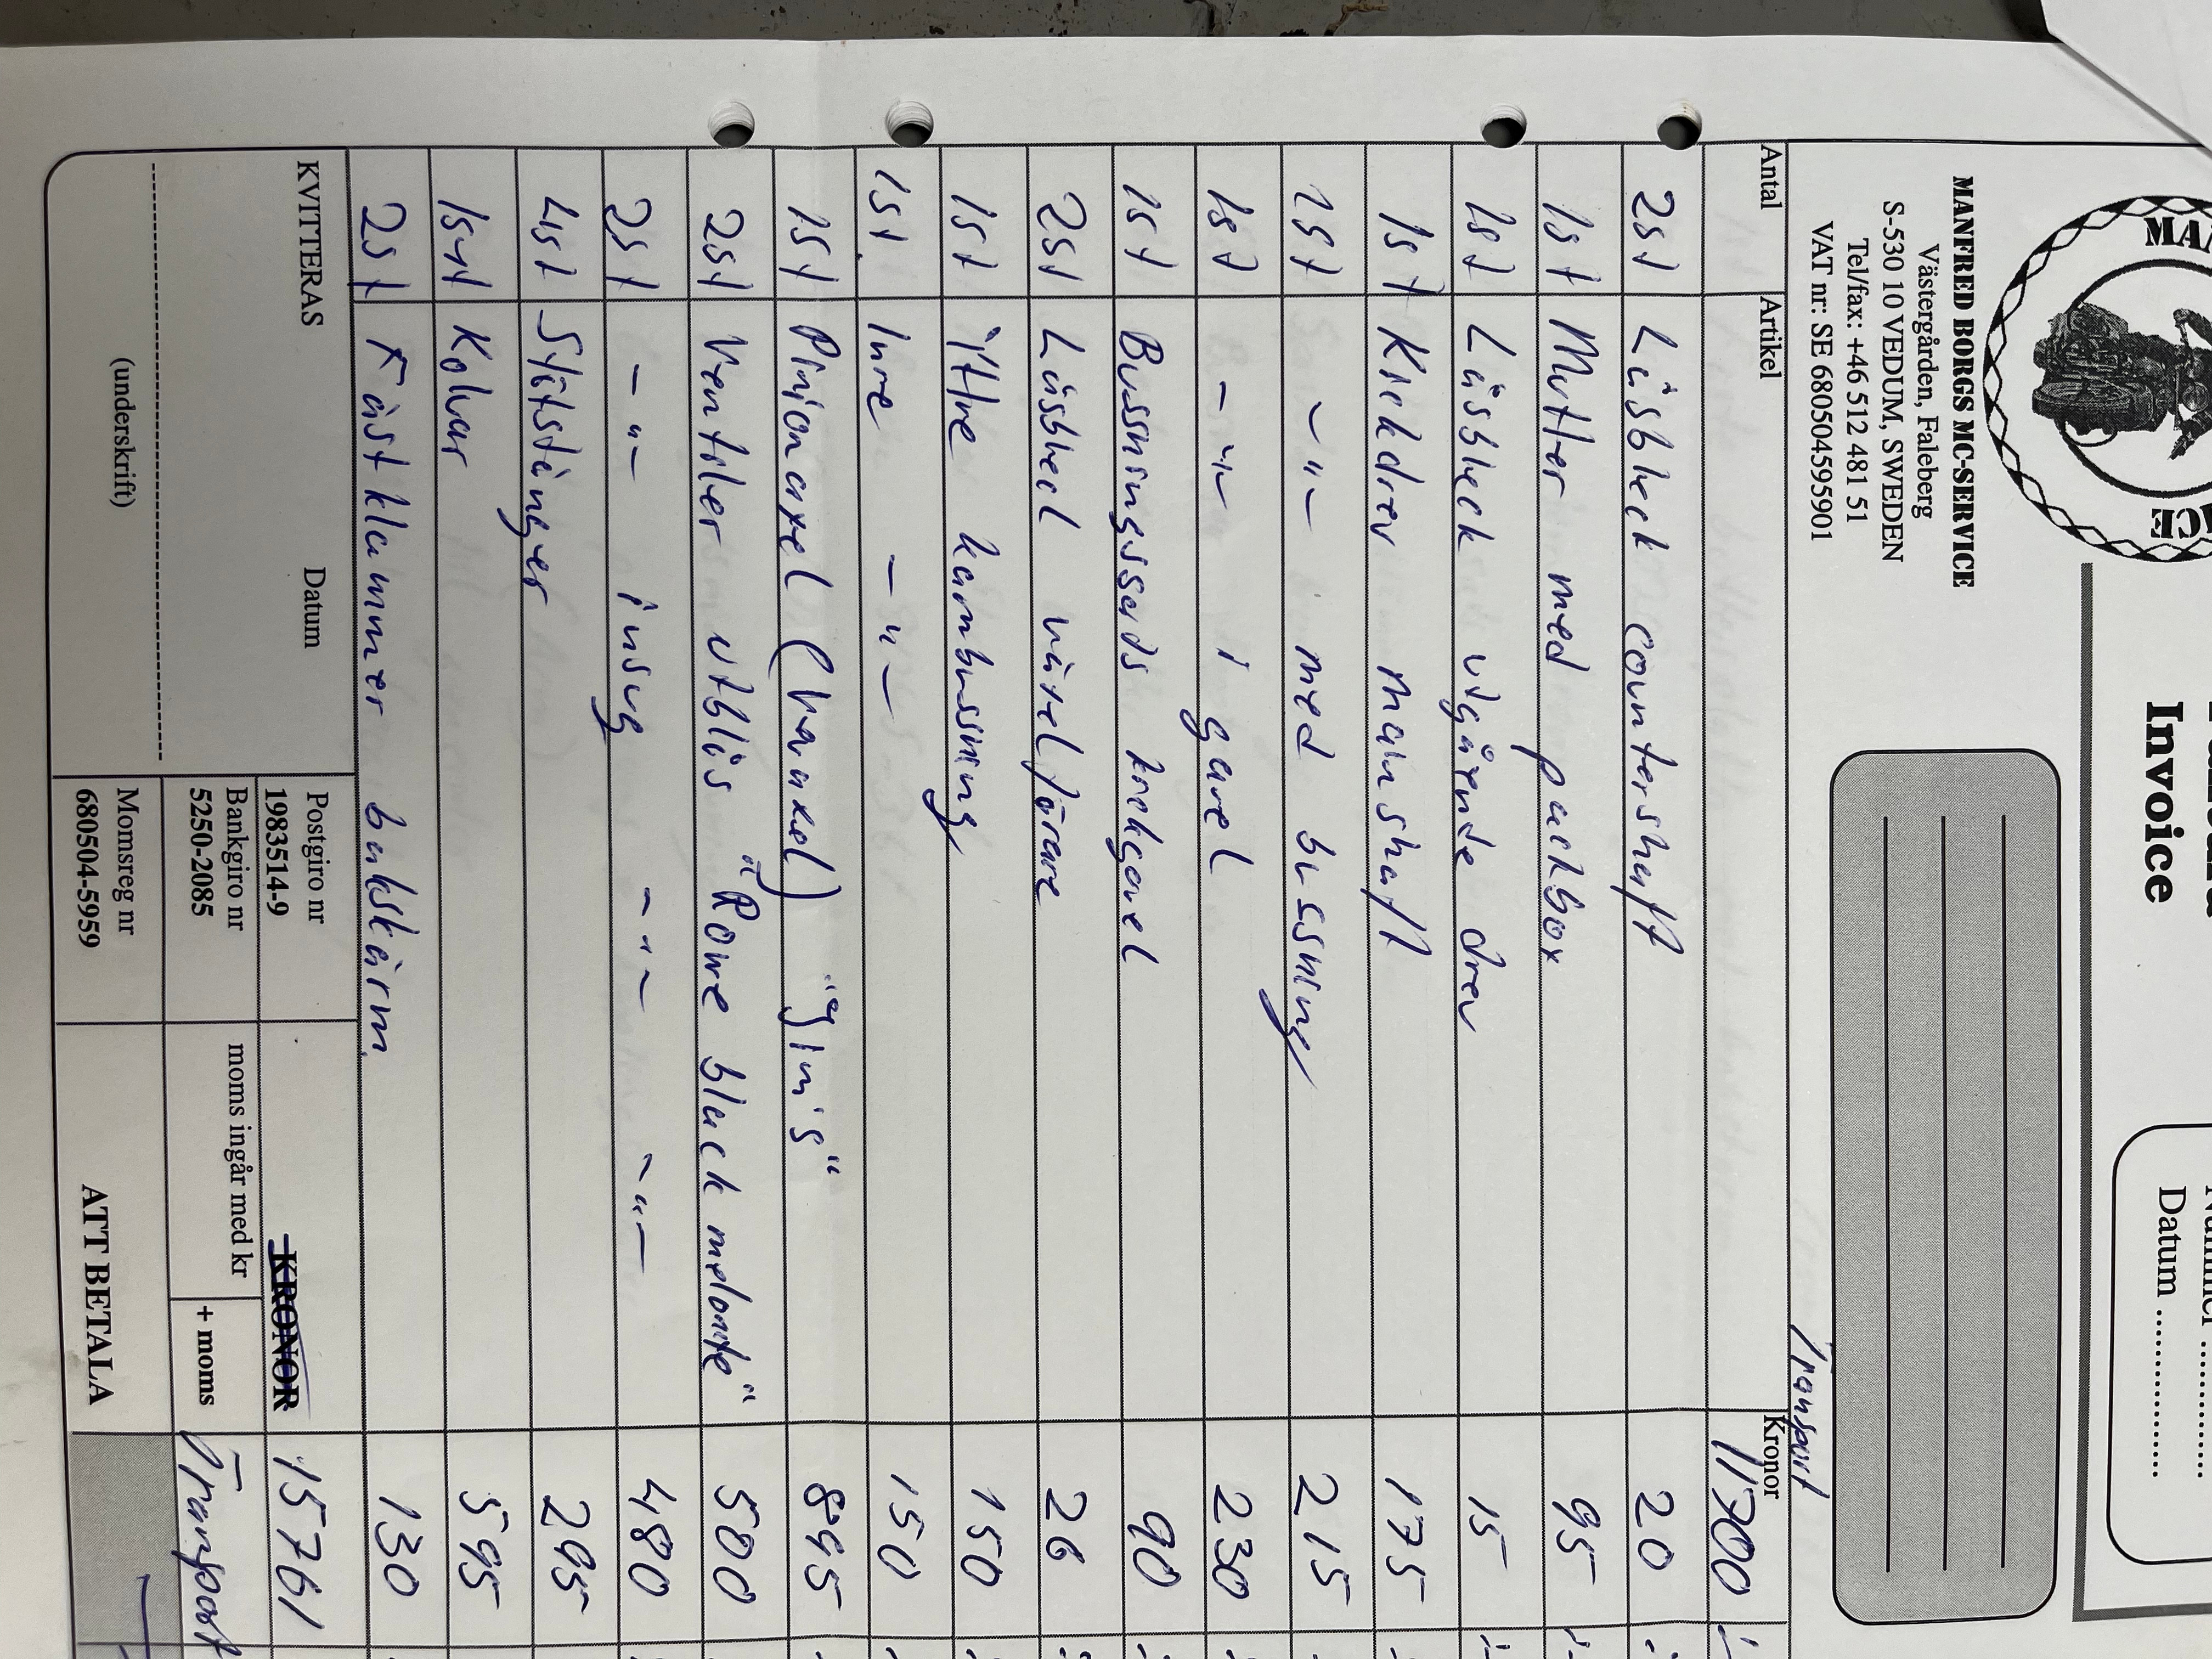 MANFRED BORGS MC-SERVICE
Västergården, Faleberg
S-530 10 VEDUM, SWEDEN
Tel/fax: +46 512 481 51
VAT nr: SE 680504595901
Invoice
Datum ..............
Transport
Antal Artikel Kronor
11700 :-
2st Låsbleck countershaft 20 :-
1st Mutter med packbox 95 :-
1st Låsbleck utgående drev 15 :-
1st Kickdrev mainshaft 175 :-
1st -"- med bussning 215 :-
1st -"- i gavel 230 :-
1st Bussningssats kickgavel 90 :-
2st Låsbleck växelförare 26 :-
1st Yttre kambussning 150 :-
1st. Inre -"- 150 :-
1st Pinionaxel (Vevaxel) "Jim's" 895 :-
2st Ventiler utblås "Rowe black melonite" 500 :-
2st -"- insug -"- -"- 480 :-
4st Stötstänger 295 :-
1set Kolvar 595 :-
2st Fästklammer bakskärm 130 :-
KVITTERAS Datum
(underskrift)
Postgiro nr
1983514-9
Bankgiro nr
5250-2085
Momsreg nr
680504-5959
KRONOR 15761
moms ingår med kr + moms Transport
ATT BETALA